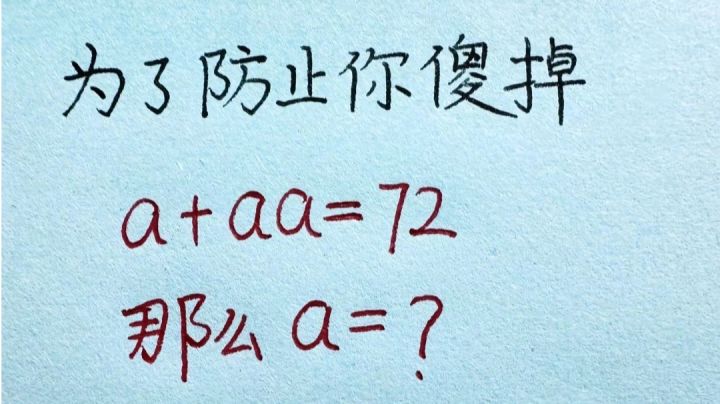 为了防止你傻掉
a+aa=72
那么a=?